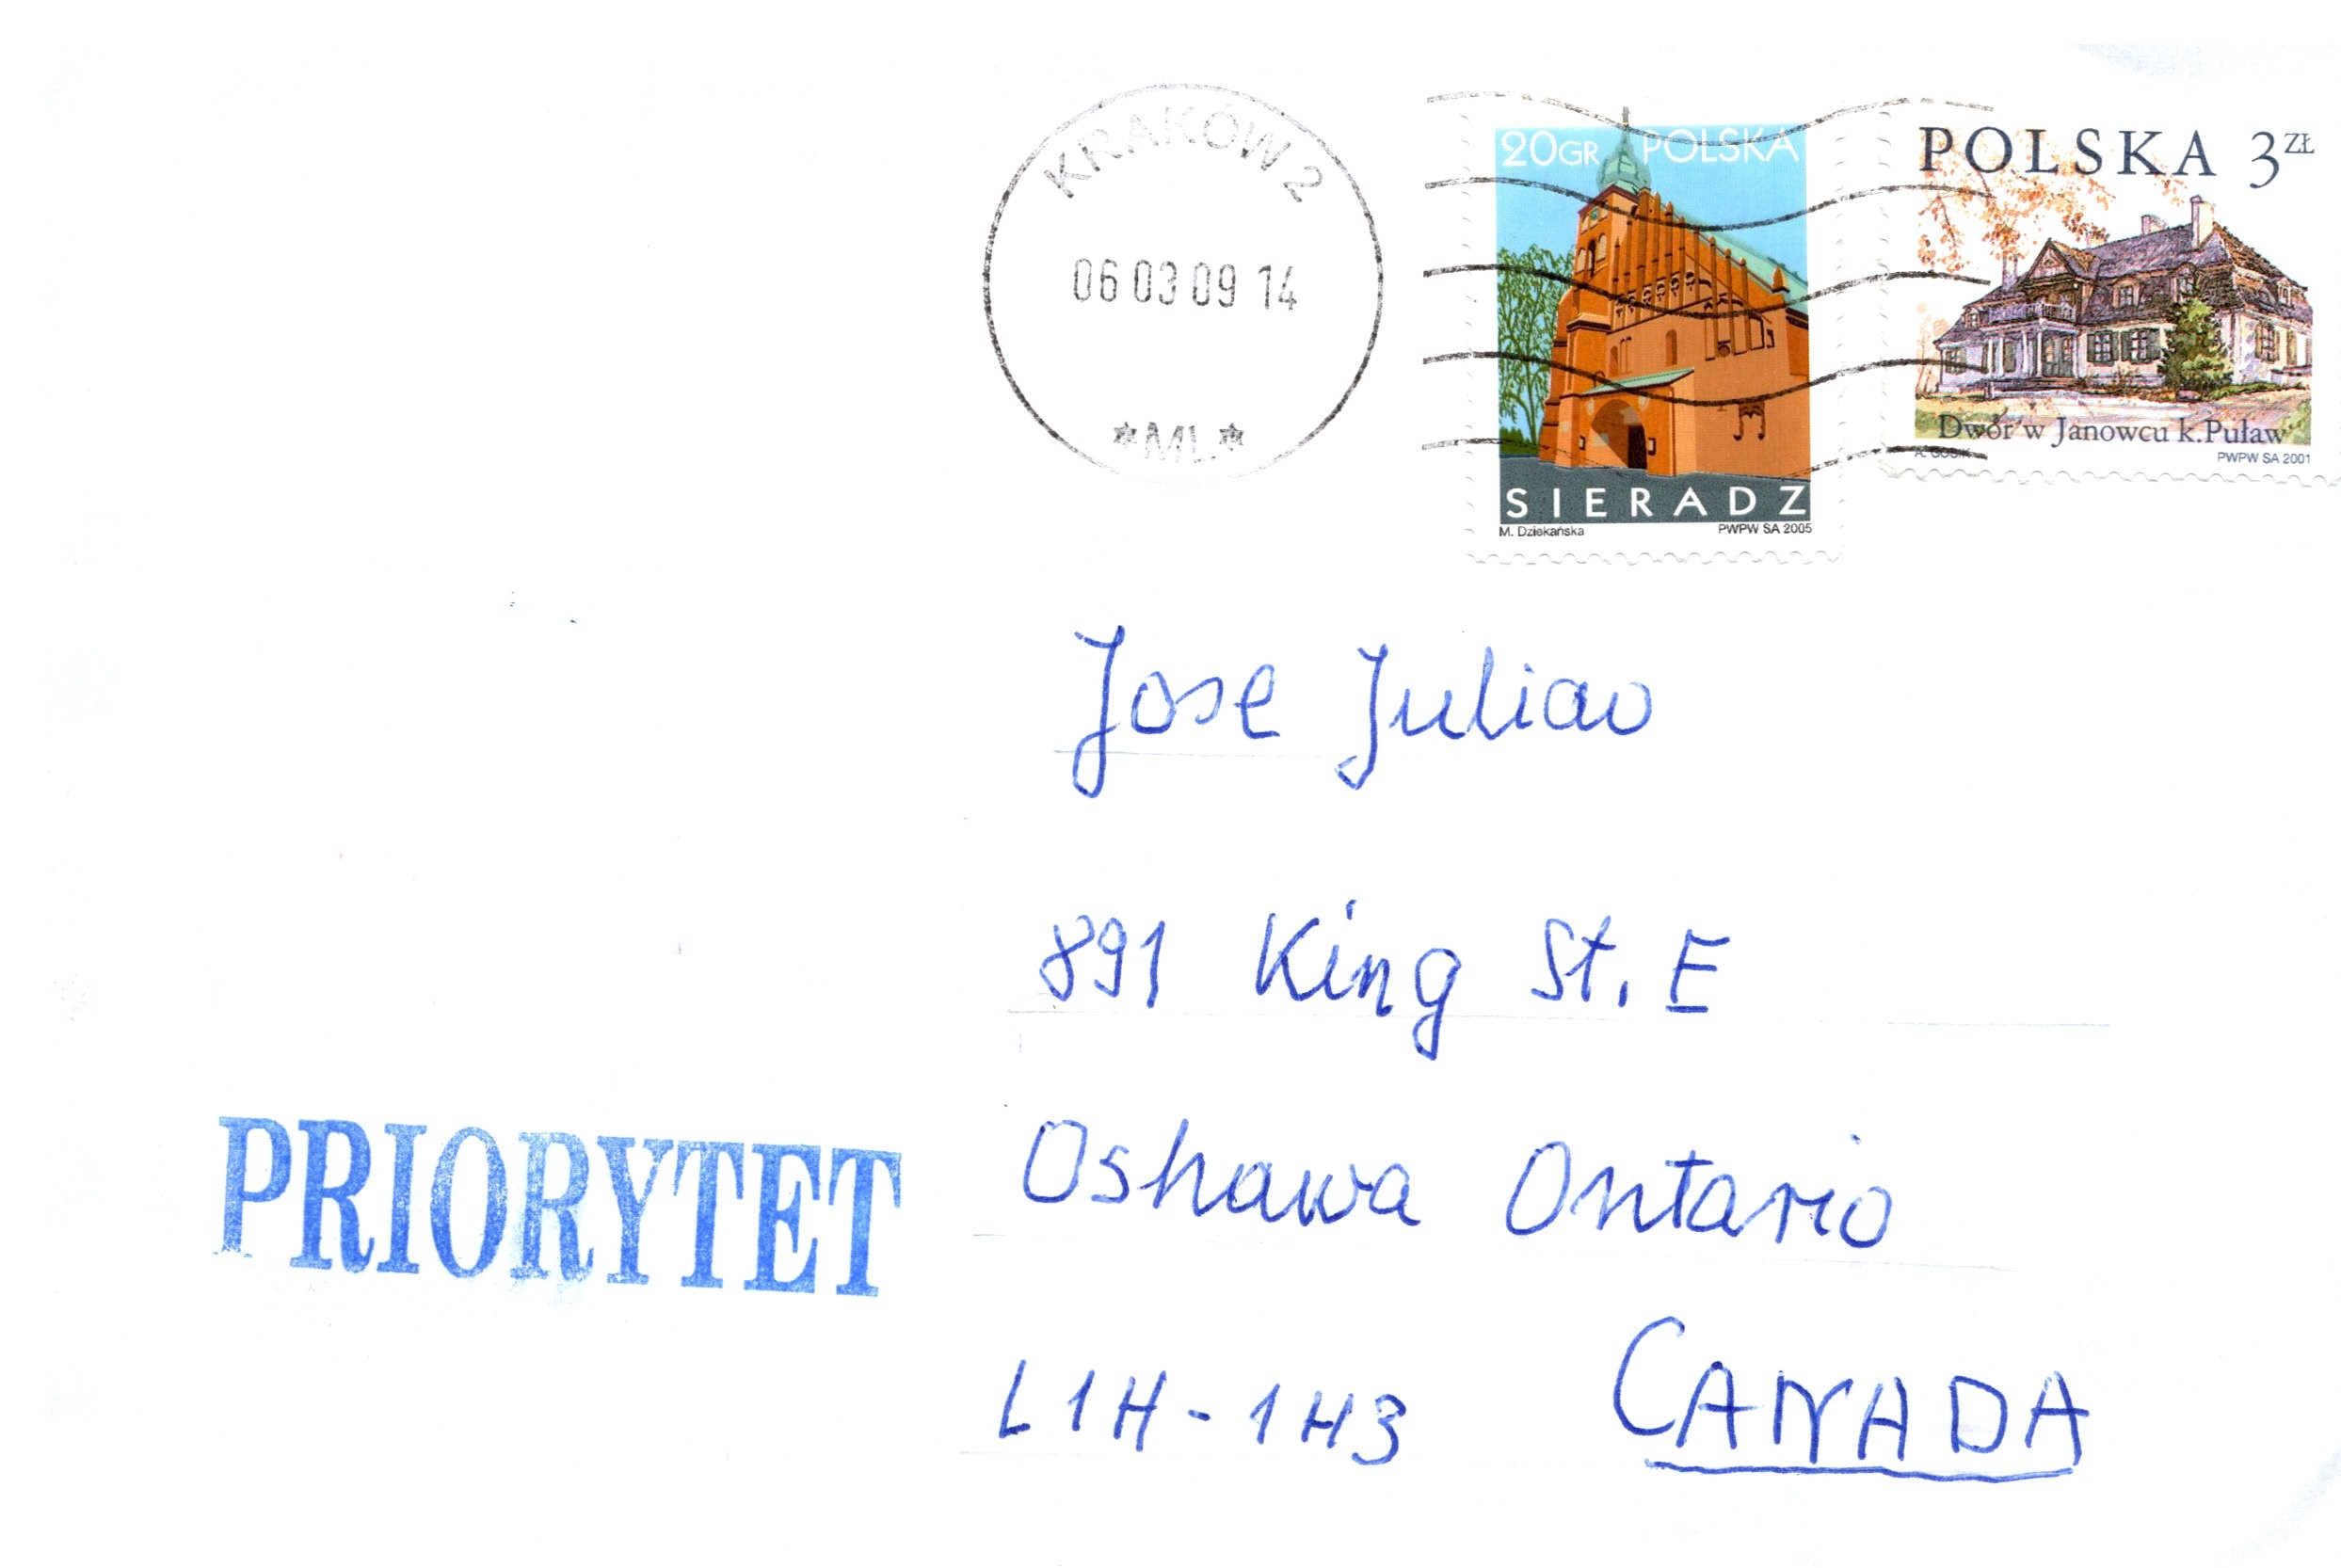 KRAKÓW 2
06 03 09 14
*ML*
20GR POLSKA
SIERADZ
M. Dziekańska PWPW SA 2005
POLSKA 3ZŁ
Dwór w Janowcu k.Puław
A. GOSIK PWPW SA 2001
Jose Juliao
891 King St. E
PRIORYTET
Oshawa Ontario
L1H-1H3 CANADA